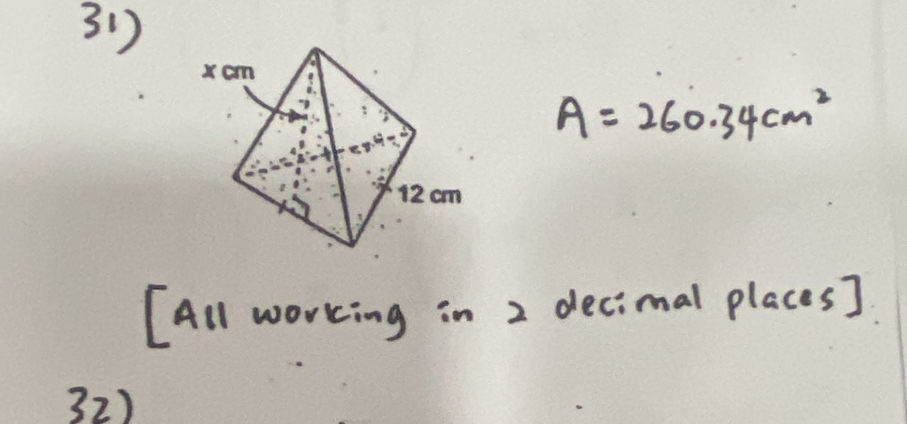 31)
x cm
A = 260.34cm²
12 cm
[All working in 2 decimal places].
32)